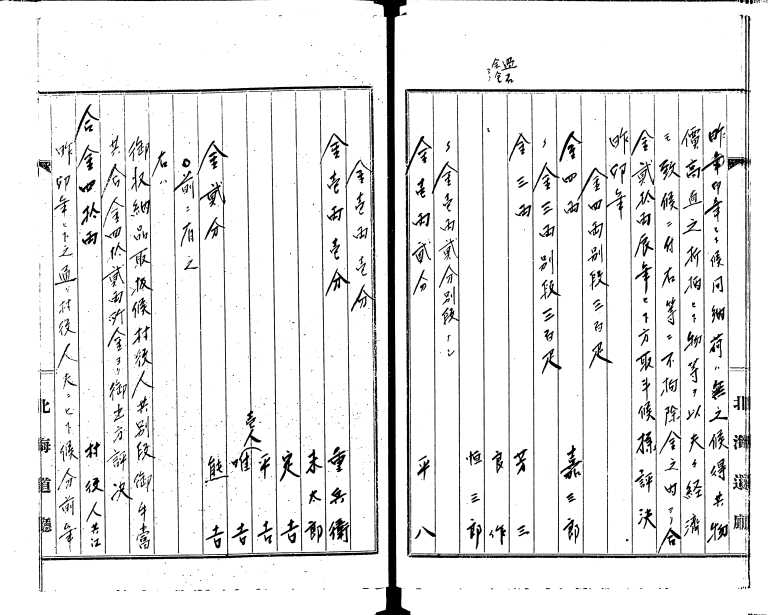 昨年卯年ヒト候同納荷ハ無之候得共物
價高直之折柄ヒト物等ヲ以夫々経済
ニ致候ニ付右等ニ不拘除金之内ヨリ合
金貳拾両辰年ヒト方取斗候様評決
昨卯年
金四両別段三百疋
金四両 嘉三郎
〃金三両別段三百疋
金三両 芳三
良作
恒三郎
〃金壱両貳分別段〃
金壱両貳分 平八
金壱両壱分
金壱両壱分 重兵衛
末太郎
定吉
平吉
壱人
唯吉
熊吉
金貳分
前ニ有之
右ハ
御収納品取扱候村役人共別段御手當
共合金四拾貳両所金ヨリ御出方評決
合金四拾両 村役人共江
昨卯年ヒト之通リ村役人夫々ヒト候分前年
北海道廳
北海道廳